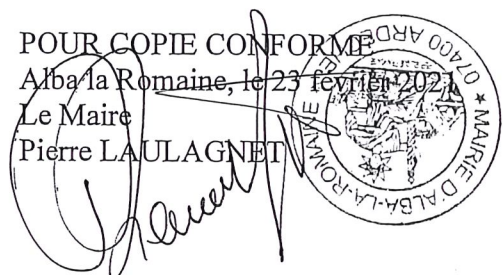 POUR COPIE CONFORME
Alba la Romaine, le 23 février 2021
Le Maire
Pierre LAULAGNET
MAIRIE D'ALBA-LA-ROMAINE ★ 07400 ARDE